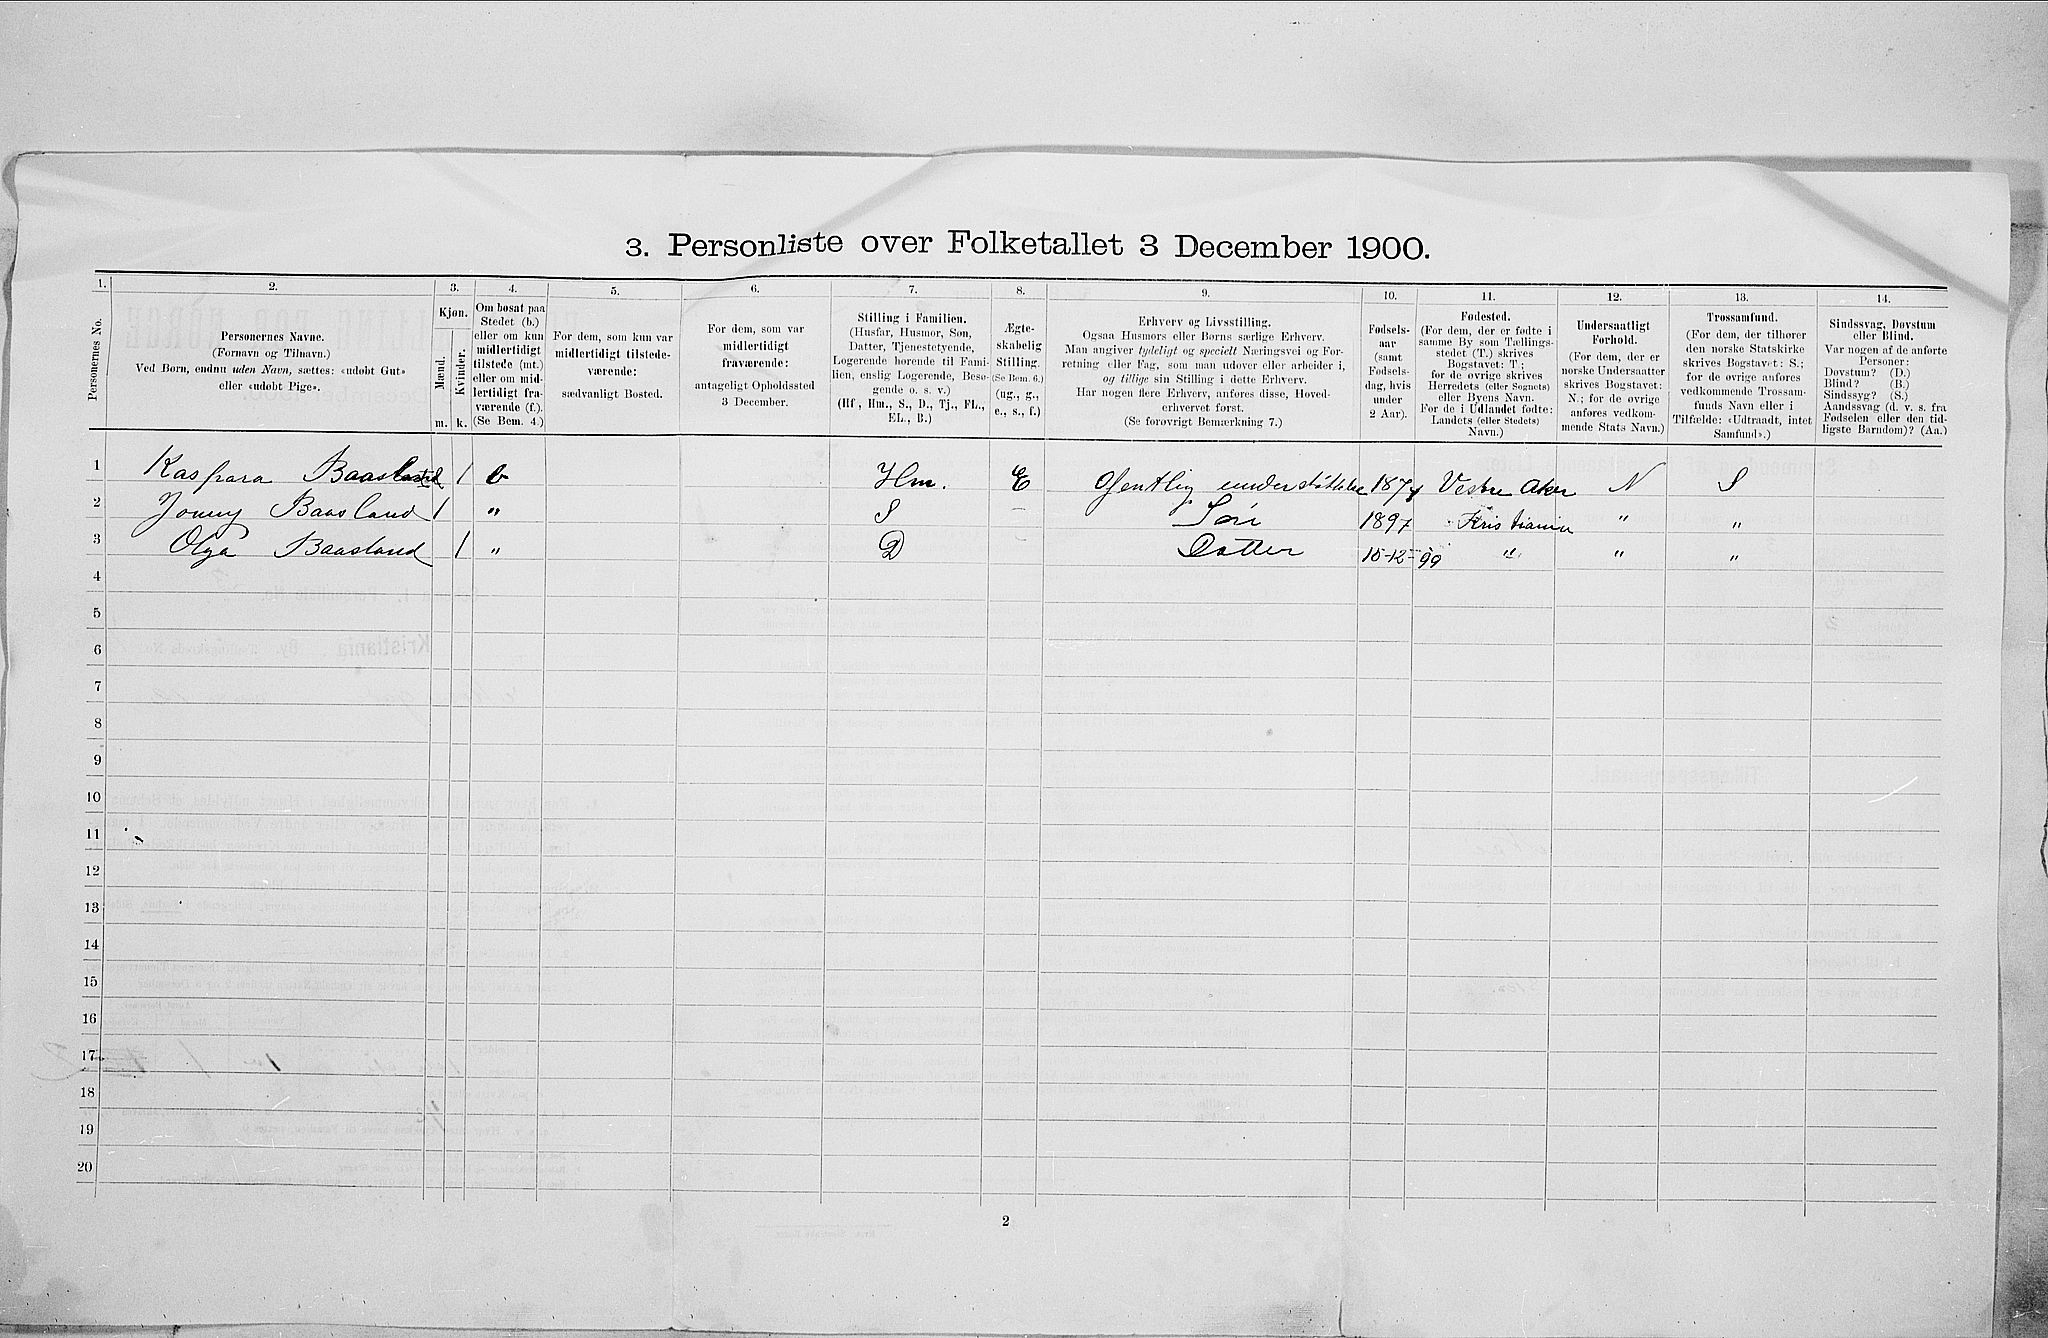 3. Personliste over Folketallet 3 December 1900.
1. 2. 3. 4. 5. 6. 7. 8. 9. 10. 11. 12. 13. 14.
Personernes No.
Personernes Navne.
(Fornavn og Tilnavn.)
Ved Børn, endnu uden Navn, sættes: «udøbt Gut»
eller «udøbt Pige».
Kjøn.
Mænd.
Kvinder.
m. k.
Om bosat paa
Stedet (b.)
eller om kun
midlertidigt
tilstede (mt.)
eller om mid-
lertidigt fra-
værende (f.).
(Se Bem. 4.)
For dem, som kun var
midlertidigt tilstede-
værende:
sædvanligt Bosted.
For dem, som var
midlertidigt
fraværende:
antageligt Opholdssted
3 December.
Stilling i Familien.
(Husfar, Husmor, Søn,
Datter, Tjenestetyende,
Logerende hørende til Fami-
lien, enslig Logerende, Besø-
gende o. s. v.)
(Hf., Hm., S., D., Tj., FL.,
EL., B.)
Ægte-
skabelig
Stilling.
(Se Bem. 6.)
(ug., g.,
e., s., f.)
Erhverv og Livsstilling.
Ogsaa Husmors eller Børns særlige Erhverv.
Man angiver tydeligt og specielt Næringsvei og For-
retning eller Fag, som man udover eller arbeider i,
og tillige sin Stilling i dette Erhverv.
Har nogen flere Erhverv, anføres disse, Hoved-
erhvervet først.
(Se forøvrigt Bemærkning 7.)
Fødsels-
aar
(samt
Fødsels-
dag, hvis
under
2 Aar).
Fødested.
(For dem, der er fødte i
samme By som Tællings-
stedet (T.) skrives
Bogstavet: T.;
for de øvrige skrives
Herredets (eller Sognets)
eller Byens Navn.
For de i Udlandet fødte:
Landets (eller Stedets)
Navn.)
Undersaatligt
Forhold.
(For dem, der er
norske Undersaatter
skrives Bogstavet:
N.; for de øvrige
anføres vedkom-
mende Stats Navn.)
Trossamfund.
(For dem, der tilhører
den norske Statskirke
skrives Bogstavet: S.;
for de øvrige anføres
vedkommende Trossam-
funds Navn eller i
Tilfælde: «Udtraadt, intet
Samfund».)
Sindssvag, Døvstum
eller Blind.
Var nogen af de anførte
Personer:
Døvstum? (D.)
Blind? (B.)
Sindssyg? (S.)
Aandssvag (d. v. s. fra
Fødselen eller den tid-
ligste Barndom)? (Aa.)
1 Kaspara Baasland 1 b Hm. E Ofentlig understøttelse 1874 Vestre Aker N S
2 Jonny Baasland 1 " S Søn 1897 Kristiania " "
3 Olga Baasland 1 " D Datter 15-12-99 " " "
4
5
6
7
8
9
10
11
12
13
14
15
16
17
18
19
20
2